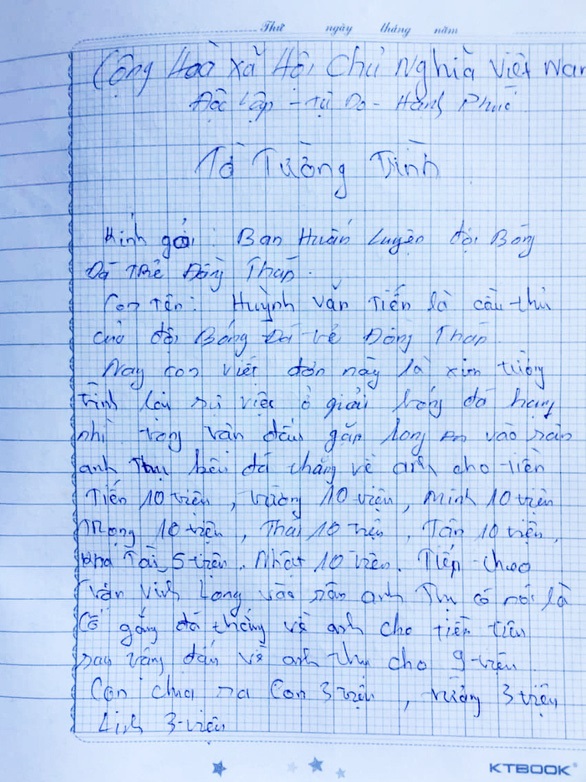 Thứ ngày tháng năm
Cộng Hoà Xã Hội Chủ Nghĩa Việt Nam
Độc Lập - Tự Do - Hạnh Phúc
Tờ Tường Trình
Kính gởi: Ban Huấn Luyện đội Bóng
Đá Trẻ Đồng Tháp.
Con Tên: Huỳnh Văn Tiến là cầu thủ
của đội Bóng Đá trẻ Đồng Tháp.
Nay con viết đơn này là xin tường
trình lại sự việc ở giải bóng đá hạng
nhì trong trận đấu gặp Long An vào sân
anh Thu kêu đá thắng về anh cho tiền
Tiến 10 triệu, Vương 10 triệu, Minh 10 triệu
Trọng 10 triệu, Thái 10 triệu, Tân 10 triệu,
Tài 5 triệu. Nhật 10 triệu. Tiếp theo
trận Vĩnh Long vào sân anh Thu có nói là
cố gắng đá thắng về anh cho tiền tiêu
sau vòng đấu về anh Thu cho 9 triệu
Con chia ra con 3 triệu, Vương 3 triệu
Linh 3 triệu
KTBOOK